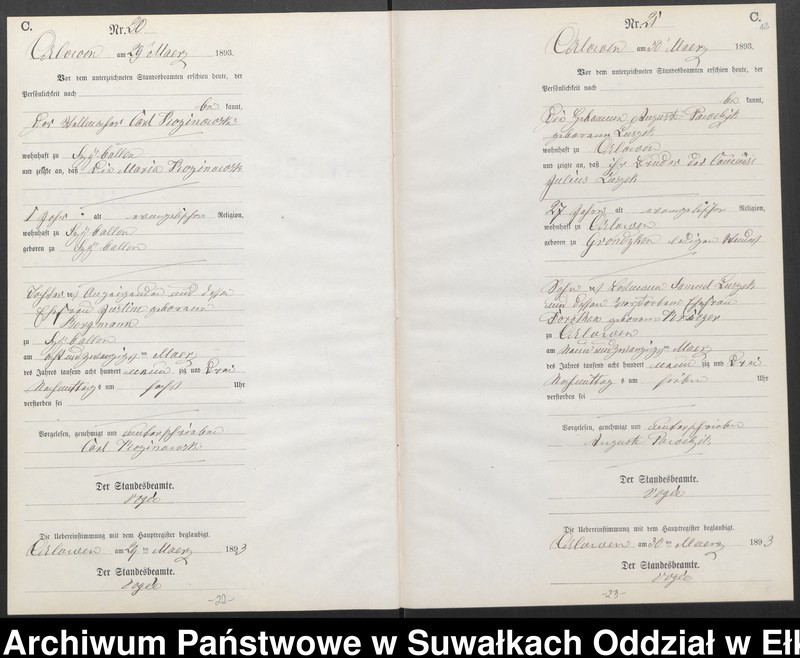 C.
Nr. 20
Orlowen am 29 Maerz 1893.
Vor dem unterzeichneten Standesbeamten erschien heute, der
Persönlichkeit nach
be kannt,
Der Carl Roginowski
wohnhaft zu ballen
und zeigte an, daß die Maria Roginowski
1 Jahr alt evangelischer Religion,
wohnhaft zu ballen
geboren zu ballen
Tochter des Anzeigenden und dessen
Ehefrau Justine geborenen
Bergmann
zu ballen
am acht und zwanzigsten Maerz
des Jahres tausend acht hundert neun zig und drei
Nachmittag s um Uhr
verstorben sei
Vorgelesen, genehmigt und unterschrieben
Carl Roginowski
Der Standesbeamte.
Vogée
Die Uebereinstimmung mit dem Hauptregister beglaubigt.
Orlowen am 29 ten Maerz 1893
Der Standesbeamte.
Vogée
-22-
C.
Nr. 21
Orlowen am 30 Maerz 1893.
Vor dem unterzeichneten Standesbeamten erschien heute, der
Persönlichkeit nach
be kannt,
Die Hebamme Auguste
geborene Luszyk
wohnhaft zu Orlowen
und zeigte an, daß ihr Bruder der
Julius Luszyk
27 Jahre alt evangelischer Religion,
wohnhaft zu Orlowen
geboren zu Grondzken ledigen Standes
Sohn des Losmann Samuel Luszyk
und dessen verstorbenen Ehefrau
Dorothea geborenen Krüger
zu Orlowen
am neun und zwanzigsten Maerz
des Jahres tausend acht hundert neun zig und drei
Nachmittag s um sieben Uhr
verstorben sei
Vorgelesen, genehmigt und unterschrieben
Auguste
Der Standesbeamte.
Vogée
Die Uebereinstimmung mit dem Hauptregister beglaubigt.
Orlowen am 30 ten Maerz 1893
Der Standesbeamte.
Vogée
-23-
Archiwum Państwowe w Suwałkach Oddział w Ełk